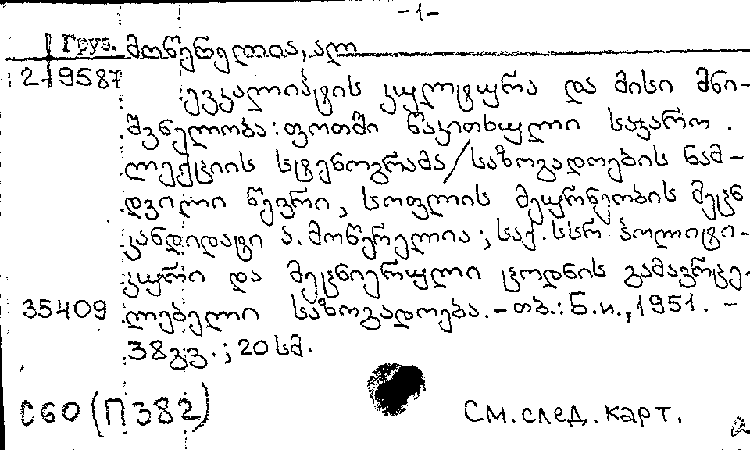 -1-
Груз. მოწერელია, ალ
2-9587
ევკალიპტის კულტურა და მისი მნი-
შვნელობა: ფოთში წაკითხული საჯარო
ლექციის სტენოგრამა/საზოგადოების ნამ-
დვილი წევრი, სოფლის მეურნეობის მეცნ
კანდიდატი ა. მოწერელია; საქ. სსრ პოლიტი-
კური და მეცნიერული ცოდნის გამავრცე-
35409 ლებელი საზოგადოება. - თბ.: Б.и., 1951. -
38გვ.; 20 სმ.
С60 (П382)
См. след. карт.